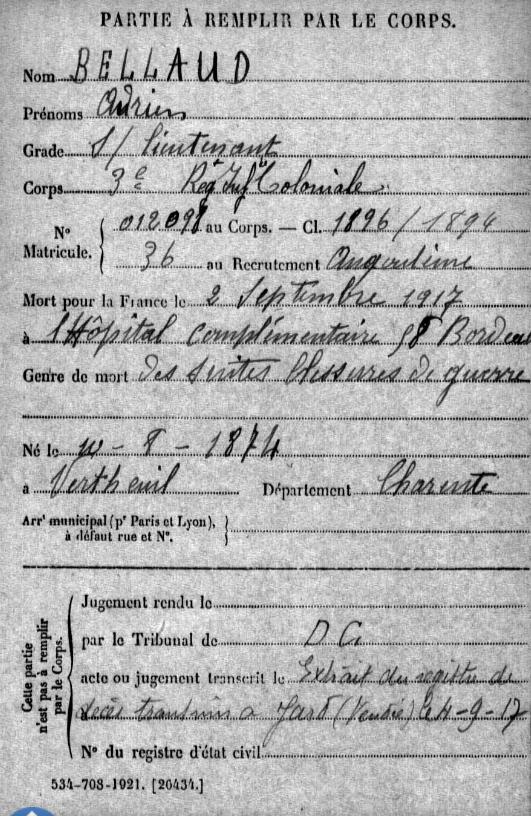 PARTIE À REMPLIR PAR LE CORPS.
Nom BELLAUD
Prénoms Adrien
Grade S/ lieutenant
Corps 3e Regt Inft Coloniale
No Matricule. 012098 au Corps. — Cl. 1896 / 1894
36 au Recrutement Angoulême
Mort pour la France le 2 Septembre 1917
à l'Hôpital complémentaire 58 Bordeau
Genre de mort des suites blessures de guerre
Né le - 8 - 1874
à Vertheuil Département Charente
Arrt municipal (pr Paris et Lyon),
à défaut rue et No.
Cette partie n'est pas à remplir par le Corps.
Jugement rendu le
par le Tribunal de D G
acte ou jugement transcrit le Extrait du registre de
décès transmis à Jard (Vendée) 24-9-17
No du registre d'état civil
534-708-1921. [26434.]